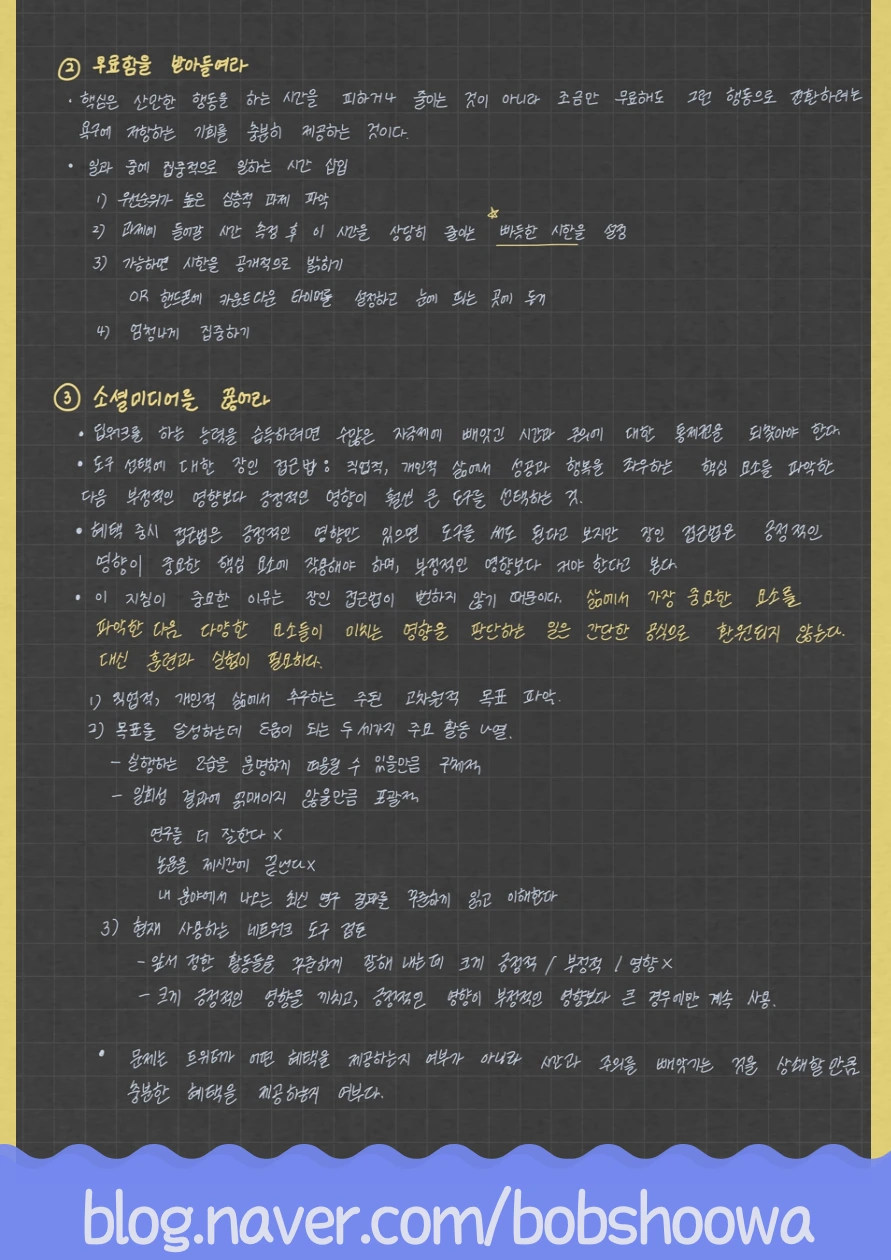 ② 무료함을 받아들여라
· 핵심은 산만한 행동을 하는 시간을 피하거나 줄이는 것이 아니라 조금만 무료해도 그런 행동으로 전환하려는
욕구에 저항하는 기회를 충분히 제공하는 것이다.
· 일과 중에 집중적으로 일하는 시간 삽입
1) 우선순위가 높은 심층적 과제 파악
2) 과제에 들어갈 시간 측정 후 이 시간을 상당히 줄이는 빠듯한 시한을 설정
3) 가능하면 시한을 공개적으로 밝히기
OR 핸드폰에 카운트다운 타이머를 설정하고 눈에 띄는 곳에 두기
4) 엄청나게 집중하기
③ 소셜미디어를 끊어라
· 딥워크를 하는 능력을 습득하려면 수많은 자극제에 빼앗긴 시간과 주의에 대한 통제권을 되찾아야 한다.
· 도구 선택에 대한 장인 접근법 : 직업적, 개인적 삶에서 성공과 행복을 좌우하는 핵심 요소를 파악한
다음 부정적인 영향보다 긍정적인 영향이 훨씬 큰 도구를 선택하는 것.
· 혜택 중시 접근법은 긍정적인 영향만 있으면 도구를 써도 된다고 보지만 장인 접근법은 긍정적인
영향이 중요한 핵심 요소에 작용해야 하며, 부정적인 영향보다 커야 한다고 본다.
· 이 지침이 중요한 이유는 장인 접근법이 뻔하지 않기 때문이다. 삶에서 가장 중요한 요소를
파악한 다음 다양한 요소들이 미치는 영향을 판단하는 일은 간단한 공식으로 환원되지 않는다.
대신 훈련과 실험이 필요하다.
1) 직업적, 개인적 삶에서 추구하는 주된 고차원적 목표 파악.
2) 목표를 달성하는데 도움이 되는 두세가지 주요 활동 나열.
- 실행하는 모습을 분명하게 떠올릴 수 있을만큼 구체적
- 일회성 결과에 얽매이지 않을만큼 포괄적
연구를 더 잘한다 X
논문을 제시간에 끝낸다 X
내 분야에서 나오는 최신 연구 결과를 꾸준하게 읽고 이해한다
3) 현재 사용하는 네트워크 도구 검토
- 앞서 정한 활동들을 꾸준하게 잘해 내는데 크게 긍정적 / 부정적 / 영향 X
- 크게 긍정적인 영향을 끼치고, 긍정적인 영향이 부정적인 영향보다 큰 경우에만 계속 사용.
· 문제는 트위터가 어떤 혜택을 제공하는지 여부가 아니라 시간과 주의를 빼앗기는 것을 상쇄할만큼
충분한 혜택을 제공하는지 여부다.
blog.naver.com/bobshoowa